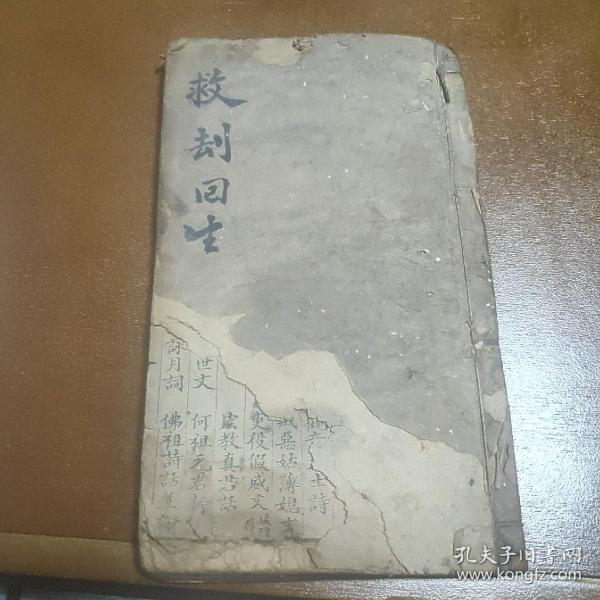 救刦回生
士詩
戒惡姑薄媳文
吏役假威文
宏教真君話
世文
何祖元君詩
詠月詞
佛祖詩話
孔夫子旧书网
www.kongfz.com